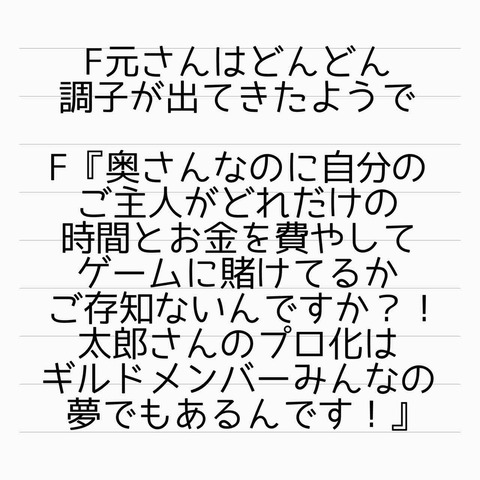 F元さんはどんどん
調子が出てきたようで
F『奥さんなのに自分の
ご主人がどれだけの
時間とお金を費やして
ゲームに賭けてるか
ご存知ないんですか？！
太郎さんのプロ化は
ギルドメンバーみんなの
夢でもあるんです！』